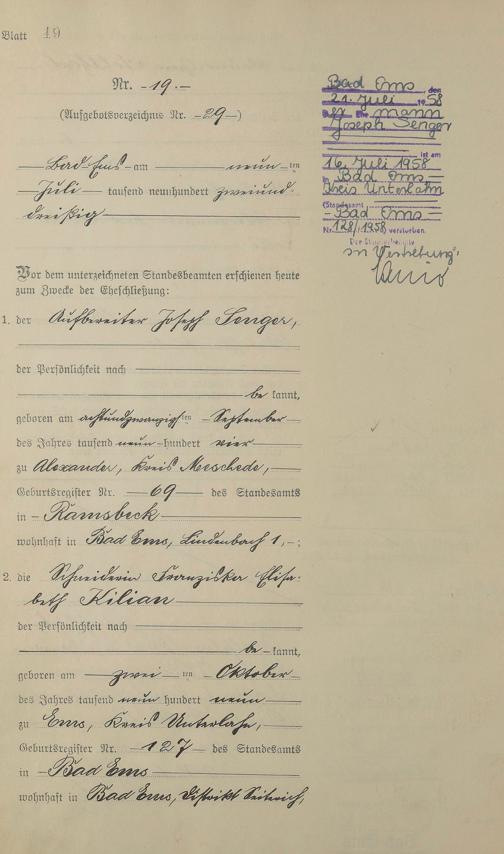 Blatt 49
Nr. -19.-
(Aufgebotsverzeichnis Nr. -29-)
Bad-Ems am neun ten
Juli tausend neunhundert zweiund-
dreißig
Vor dem unterzeichneten Standesbeamten erschienen heute
zum Zwecke der Eheschließung:
1. der Aufbereiter Joseph Senger,
der Persönlichkeit nach
be kannt,
geboren am achtundzwanzigsten September
des Jahres tausend neun hundert vier
zu Alexander, Kreis Meschede,
Geburtsregister Nr. 69 des Standesamts
in - Ramsbeck
wohnhaft in Bad Ems, Lindenbach 1,-;
2. die Schneiderin Franziska Elisa-
beth Kilian
der Persönlichkeit nach
be kannt,
geboren am zwei ten Oktober
des Jahres tausend neun hundert neun
zu Ems, Kreis Unterlahn,
Geburtsregister Nr. 127 des Standesamts
in - Bad Ems
wohnhaft in Bad Ems, Distrikt
Bad Ems den
21. Juli 1958
Ehemann
Joseph Senger
ist am
16. Juli 1958
in Bad Ems
Kreis Unterlahn
(Standesamt
- Bad Ems -
Nr. 128/1958) verstorben.
Der Standesbeamte
In Vertretung: